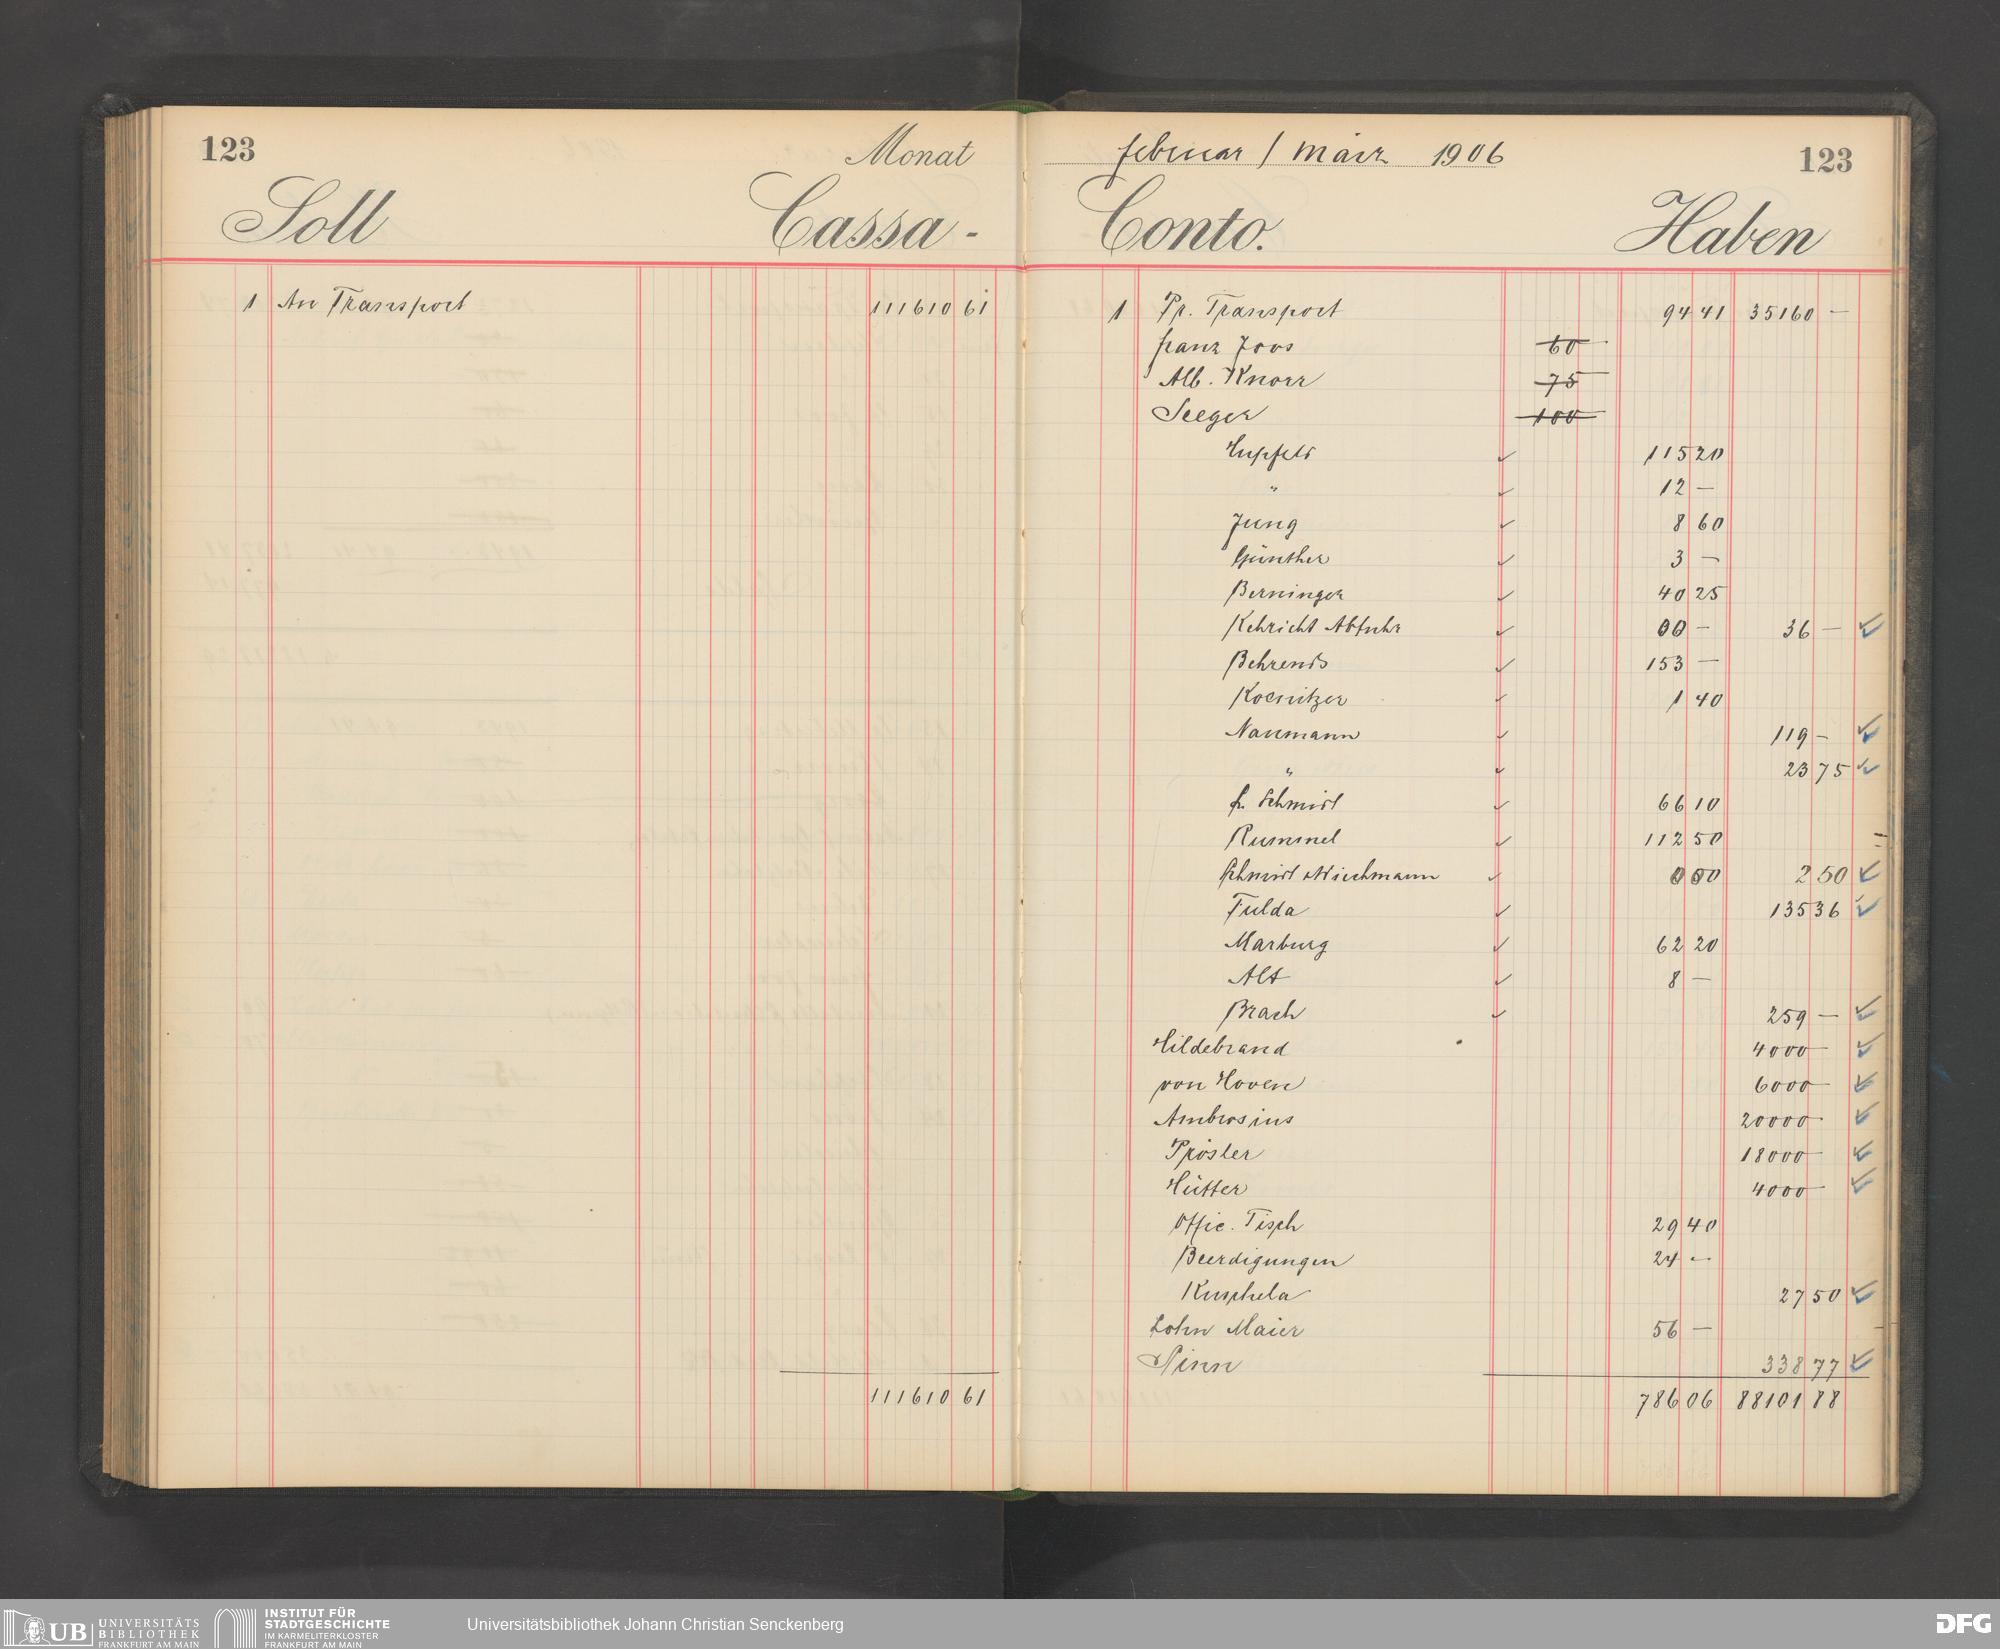 123 Monat februar / März 1906 123
Soll Cassa - Conto. Haben
1 An Transport 111610 61
111610 61
1 Pr. Transport 94 41 35160 —
franz Joos 60
Alb. Knorr 75
Seeger 100
Hupfeld ✓ 115 20
" ✓ 12 —
Jung ✓ 8 60
Günther ✓ 3 —
Berninger ✓ 40 25
Kehricht Abfuhr ✓ 00 — 36 — ✓
Behrends ✓ 153 —
Koernitzer ✓ 1 40
Naumann ✓ 119 — ✓
" ✓ 23 75 ✓
fr. Schmidt ✓ 66 10
Rummel ✓ 112 50
Schmidt Wiechmann ✓ 0 00 2 50 ✓
Fulda ✓ 135 36 ✓
Marburg ✓ 62 20
Alt ✓ 8 —
Brach ✓ 259 — ✓
Hildebrand 4000 — ✓
von Hoven 6000 — ✓
Ambrosius 20000 — ✓
Prösler 18000 — ✓
Hütter 4000 — ✓
Offic. Tisch 29 40
Beerdigungen 24 —
27 50 ✓
Lohn Maier 56 —
Sinn 338 77 ✓
786 06 88101 88
UB UNIVERSITÄTS
BIBLIOTHEK
FRANKFURT AM MAIN
INSTITUT FÜR
STADTGESCHICHTE
IM KARMELITERKLOSTER
FRANKFURT AM MAIN
Universitätsbibliothek Johann Christian Senckenberg
DFG